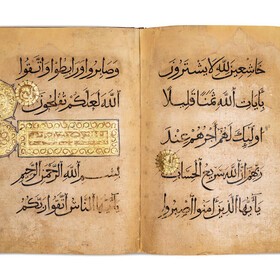 خَاشِعِينَ لِلَّهِ لَا يَشْتَرُونَ
بِآيَاتِ اللَّهِ ثَمَنًا قَلِيلًا
أُولَئِكَ لَهُمْ أَجْرُهُمْ عِنْدَ
رَبِّهِمْ إِنَّ اللَّهَ سَرِيعُ الْحِسَابِ
يَا أَيُّهَا الَّذِينَ آمَنُوا اصْبِرُوا
وَصَابِرُوا وَرَابِطُوا وَاتَّقُوا
اللَّهَ لَعَلَّكُمْ تُفْلِحُونَ
بِسْمِ اللَّهِ الرَّحْمَنِ الرَّحِيمِ
يَا أَيُّهَا النَّاسُ اتَّقُوا رَبَّكُمُ